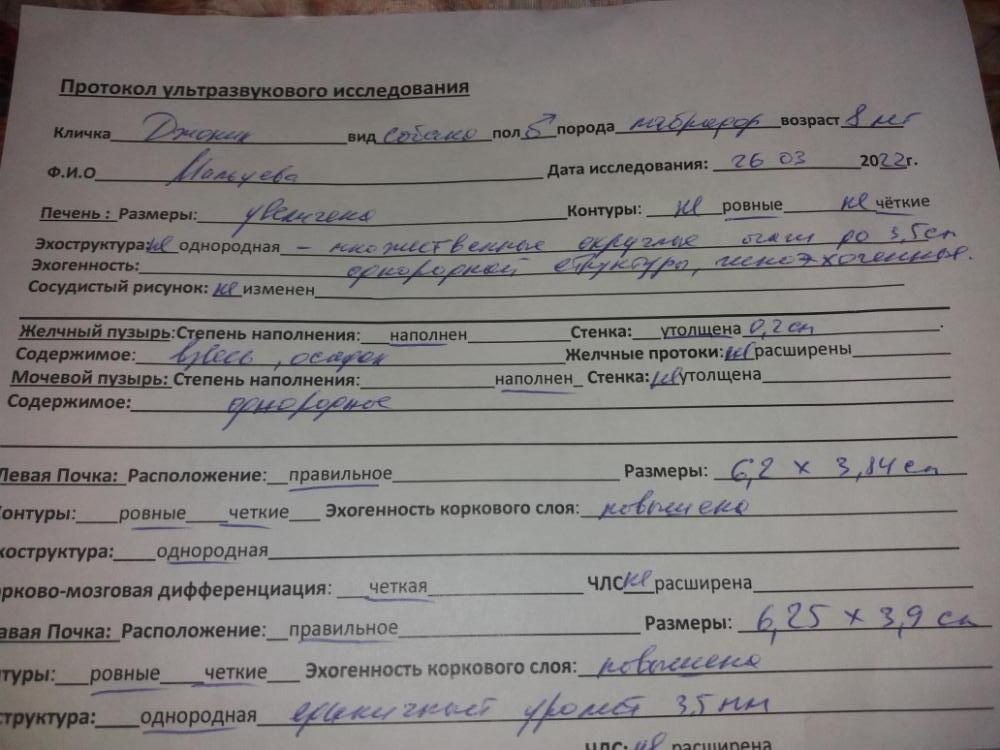 Протокол ультразвукового исследования
Кличка Джоник вид собака пол ♂ порода лабрадор возраст 8 лет
Ф.И.О Мальцева Дата исследования: 26 03 2022г.
Печень : Размеры: увеличена Контуры: не ровные не чёткие
Эхоструктура: не однородная – множественные округлые очаги до 3,5см
Эхогенность: однородной структуры, гипоэхогенные.
Сосудистый рисунок: не изменен
Желчный пузырь:Степень наполнения: наполнен Стенка: утолщена 0,2 см
Содержимое: взвесь, осадок Желчные протоки: не расширены
Мочевой пузырь: Степень наполнения: наполнен Стенка: не утолщена
Содержимое: однородное
Левая Почка: Расположение: правильное Размеры: 6,2 x 3,84 см
Контуры: ровные четкие Эхогенность коркового слоя: повышена
хоструктура: однородная
орково-мозговая дифференциация: четкая ЧЛС не расширена
авая Почка: Расположение: правильное Размеры: 6,25 x 3,9 см
нтуры: ровные четкие Эхогенность коркового слоя: повышена
структура: однородная единичный уролит 3,5 мм
ЧЛС: не расширена